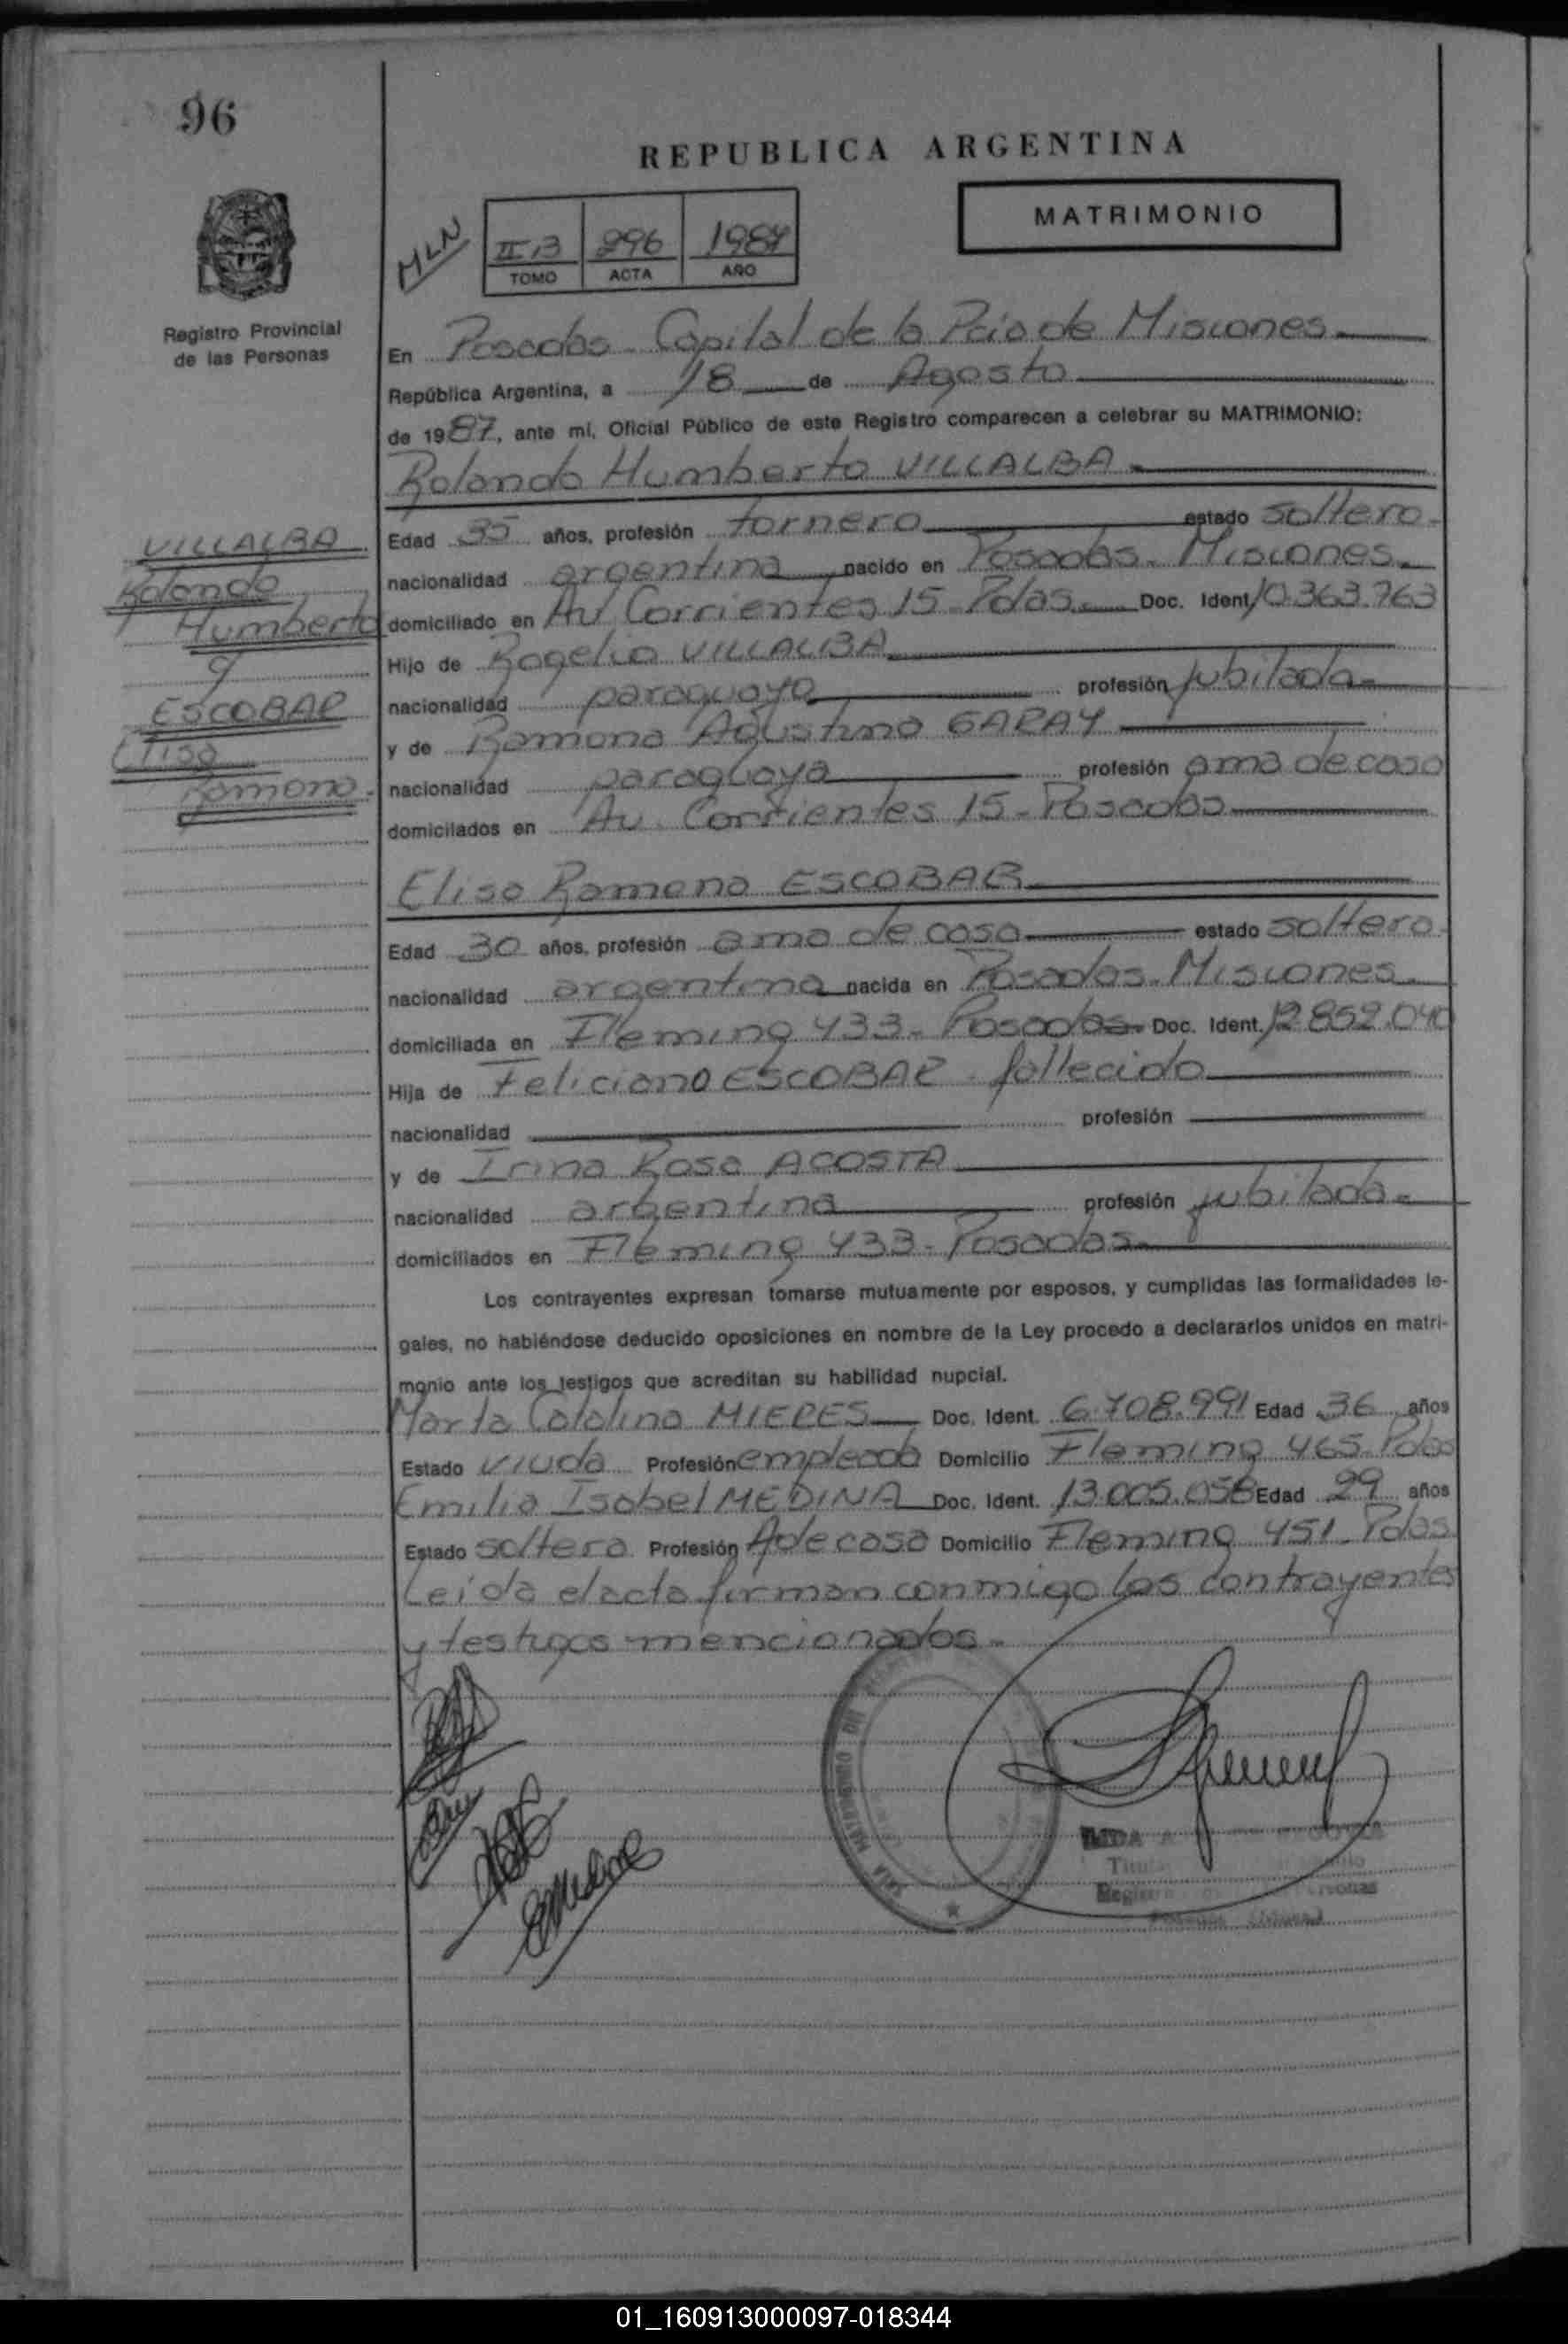 96
REPUBLICA ARGENTINA
MATRIMONIO
MLN
II B 296 1987
TOMO ACTA AÑO
Registro Provincial
de las Personas
En Posadas - Capital de la Pcia de Misiones
República Argentina, a 18 de Agosto
de 1987, ante mí, Oficial Público de este Registro comparecen a celebrar su MATRIMONIO:
Rolando Humberto VILLALBA
VILLALBA
Rolando
Humberto
y
ESCOBAR
Elisa
Ramona
Edad 35 años, profesión tornero estado soltero
nacionalidad argentina nacido en Posadas - Misiones
domiciliado en Av Corrientes 15 - Pdas Doc. Ident. 10.363.763
Hijo de Rogelio VILLALBA
nacionalidad paraguaya profesión jubilada
y de Ramona Agustina GARAY
nacionalidad paraguaya profesión ama de casa
domicilados en Av. Corrientes 15 - Posadas
Elisa Ramona ESCOBAR
Edad 30 años, profesión ama de casa estado soltera
nacionalidad argentina nacida en Posadas - Misiones
domiciliada en Fleming 433 - Posadas Doc. Ident. 12.852.040
Hija de Feliciano ESCOBAR - fallecido
nacionalidad profesión
y de Irina Rosa ACOSTA
nacionalidad argentina profesión jubilada
domiciliados en Fleming 433 - Posadas
Los contrayentes expresan tomarse mutuamente por esposos, y cumplidas las formalidades le-
gales, no habiéndose deducido oposiciones en nombre de la Ley procedo a declararlos unidos en matri-
monio ante los testigos que acreditan su habilidad nupcial.
Marta Catalina MIERES Doc. Ident. 6.708.991 Edad 36 años
Estado viuda Profesión empleada Domicilio Fleming 465 - Pdas
Emilia Isabel MEDINA Doc. Ident. 13.005.058 Edad 29 años
Estado soltera Profesión A de casa Domicilio Fleming 451 - Pdas
Leída el acta firman conmigo los contrayentes
y testigos mencionados
01_160913000097-018344